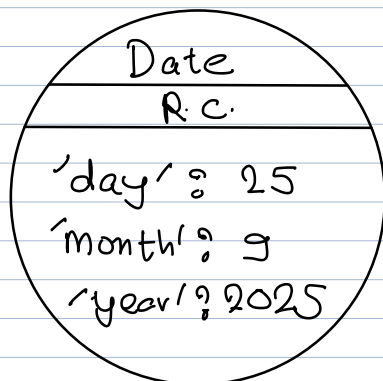 Date
R.C.
'day' : 25
'month' : 9
'year' : 2025